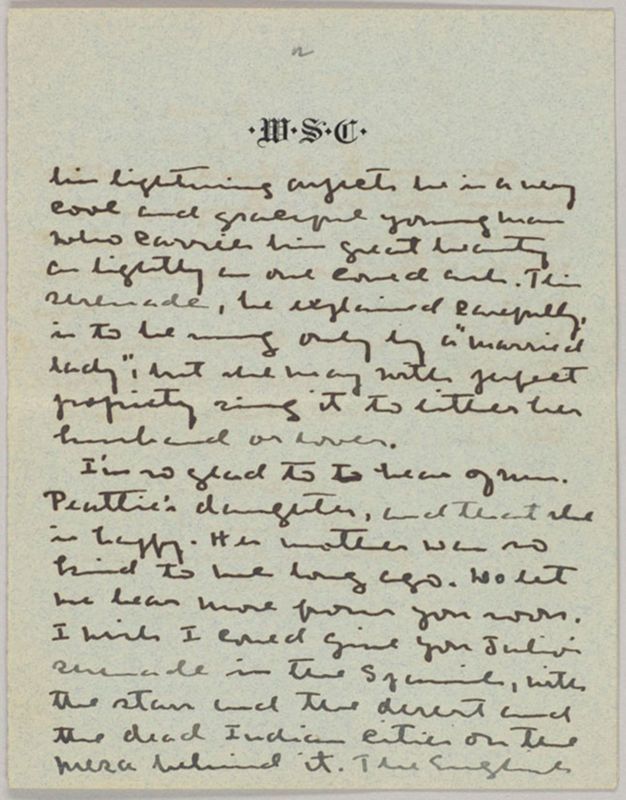 2
·W·S·C·
his lightning aspects he is a very
cool and graceful young man
who carries his great beauty
as lightly as one could ask. This
serenade, he explained carefully,
is to be sung only by a "married
lady"; but she may with perfect
propriety sing it to either her
husband or lover.
I'm so glad to to hear of Mrs.
Peattie's daughter, and that she
is happy. Her mother was so
kind to me long ago. Do let
me hear more from you soon.
I wish I could give you Julio's
serenade in the Spanish, with
the stars and the desert and
the dead Indian cities on the
mesa behind it. The English